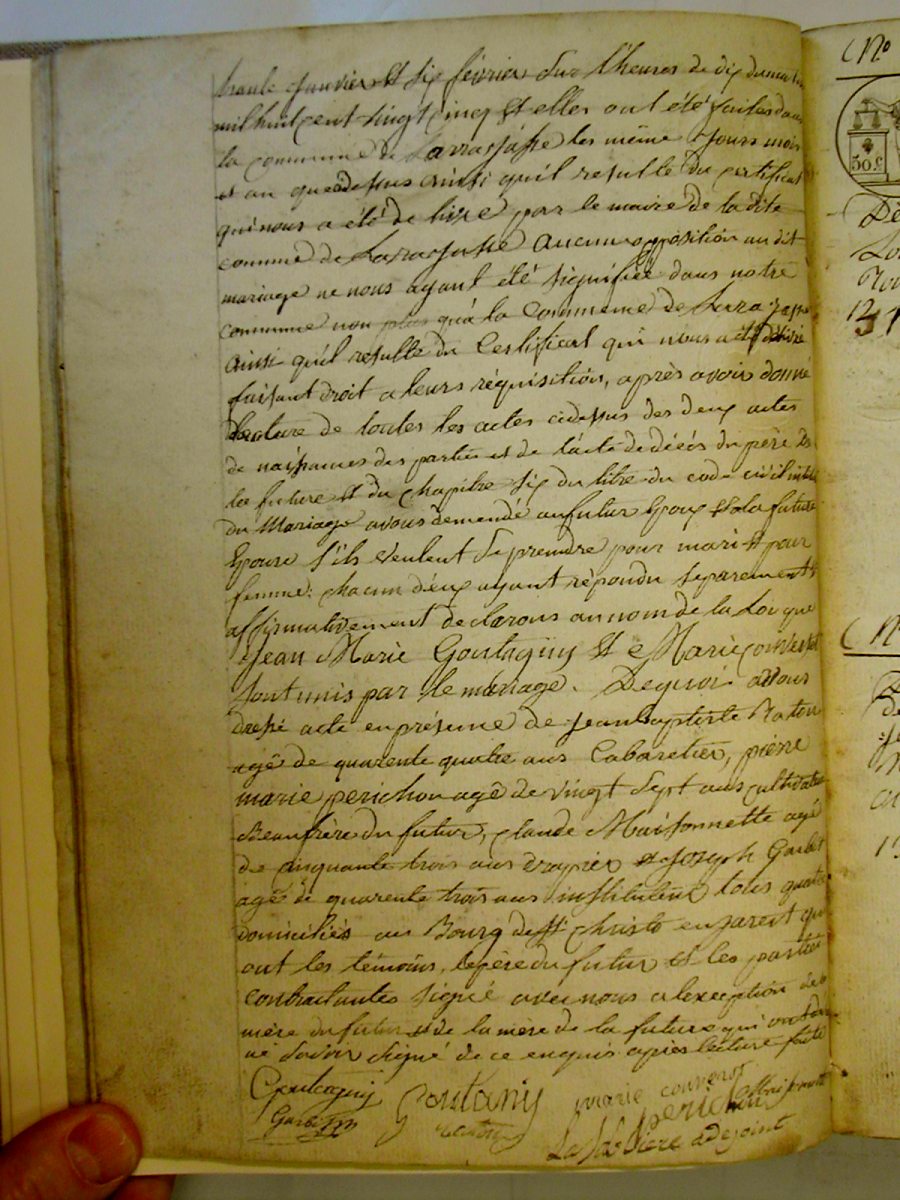 trente Janvier et six février sur l'heures de dix du matin
mil huit cent vingt cinq et elles ont été faites dans
la commune de Larrajasse les même Jours mois
et an que dessus ainsi quil resulte du certificat
qui nous a été de livre par le maire de la dite
commune de Larrajasse aucune opposition au dit
mariage ne nous ayant été signifiée dans notre
commune non plus qu'a la Commeme de Larrajasse
ainsi quil resulte du Certificat qui nous a été délivré
faisant droit a leurs réquisition, après avoir donné
lecture de toutes les actes cidessus des deux actes
de naissances des parties et de l'acte de décés du père de
la future et du chapitre six du titre du code civil intitulé
du Mariage avons demandé au futur Epoux et a la future
Epouse s'ils veulent se prendre pour mari et pour
femme: chacun d'eux ayant répondu separement et
affirmativement declarons au nom de la Loi que
Jean Marie Goutagny et Marie Convenot
sont unis par le mariage. Dequoi avons
dressé acte en présence de Jean baptiste
agé de quarente quatre ans Cabaretier, pierre
marie perichon agé de vingt sept ans cultivateur
Beaufrère du futur, claude Maisonnette agé
de cinquante trois ans drapier et Joseph
agé de quarente trois ans instituteur tous quatre
domiciliés au Bourg de St Christo en Jarent qui
ont les témoins, le père du futur et les parties
contractantes signé avec nous a lexception de la
mère du futur et de la mère de la future qui ont dit
ne savoir signé de ce enquis apres lecture faite
Goutagny Goutany marie convenot Maisonnette
perichon
La Sablière adejoint
N°
50.c
N°